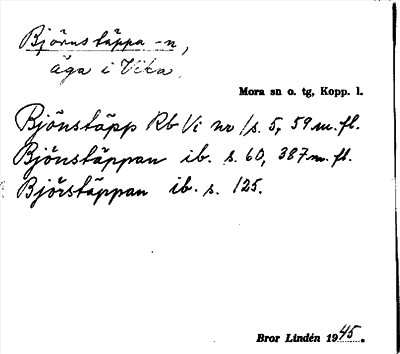 Björnstäppa -n,
äga i Vika.
Mora sn o. tg, Kopp. l.
Björnstäpp Rb Vi nr 1 s. 5, 59 m. fl.
Björnstäppan ib. s. 60, 387 m. fl.
Björstäppan ib. s. 125.
Bror Lindén 1945.